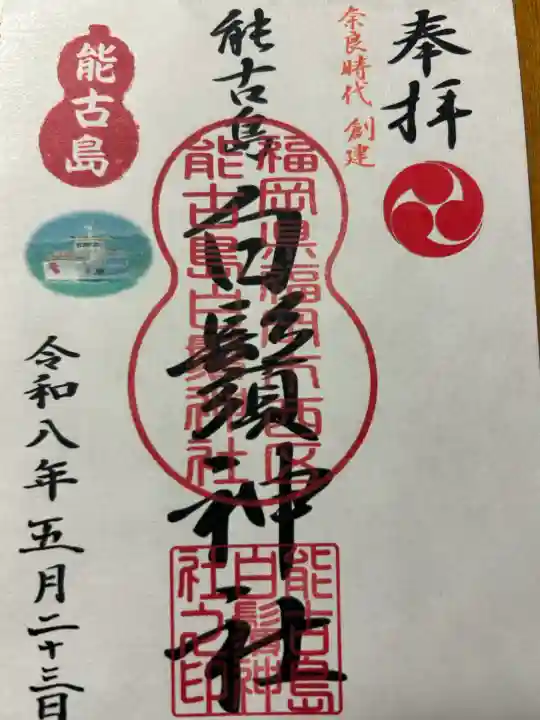 奉拝
奈良時代 創建
能古島
白鬚神社
福岡県福岡市西区
能古島白鬚神社
能古島
白鬚神
社之印
能古島
令和八年五月二十三日